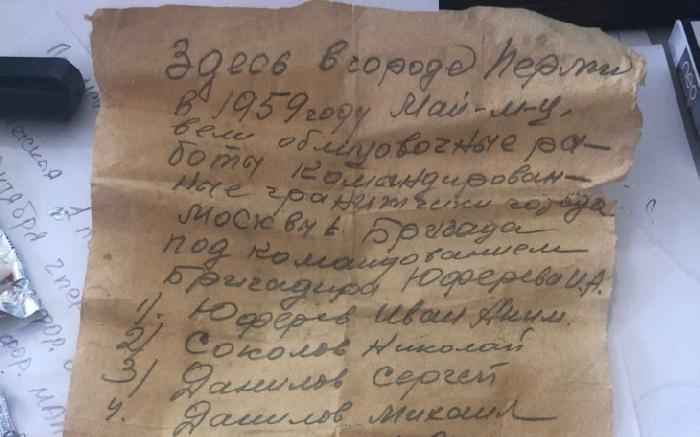 Здесь в городе Перми
в 1959 году Май-м-ц.
вели облицовочные ра-
боты командирован-
ные гранитчики города
Москвы. Бригада
под командованием
Бригадира Юферева И.А.
1). Юферев Иван Аким.
2) Соколов Николай
3) Данилов Сергей
4. Данилов Михаил